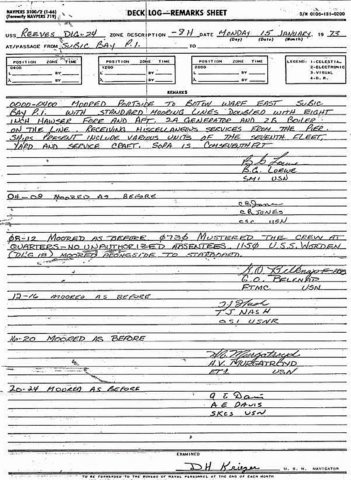 NAVPERS 3100/2 (1-66)
(Formerly NAVPERS 719)
DECK LOG—REMARKS SHEET
USS REEVES DLG-24 ZONE DESCRIPTION -8H DATE MONDAY 15 JANUARY 1973
(Day) (Date) (Month)
AT/PASSAGE FROM SUBIC BAY P.I. TO
POSITION ZONE TIME POSITION ZONE TIME POSITION ZONE TIME
0800 1200 2000
L BY L BY L BY
BY BY BY
LEGEND: 1-CELESTIAL
2-ELECTRONIC
3-VISUAL
4-D.R.
REMARKS
0000-0400 MOORED PORTSIDE TO BOTON WARF EAST SUBIC
BAY P.I. WITH STANDARD MOORING LINES DOUBLED WITH EIGHT
INCH HAWSER FORE AND AFT. 2A GENERATOR AND 2B BOILER
ON THE LINE. RECEIVING MISCELLANEOUS SERVICES FROM THE PIER.
SHIPS PRESENT INCLUDE VARIOUS UNITS OF THE SEVENTH FLEET,
YARD AND SERVICE CRAFT. SOPA IS
B.G. LOEWE
SM1 USN
04-08 MOORED AS BEFORE
C.R. JONES
USN
08-12 MOORED AS BEFORE 0730 MUSTERED THE CREW AT
QUARTERS-NO UNAUTHORIZED ABSENTEES. 1150 U.S.S. WORDEN
(DLG 18) MOORED ALONGSIDE TO STARBOARD.
G.O. BELKNAP
FTMC USN
12-16 MOORED AS BEFORE
T.J. Nash
T J NASH
OS1 USNR
16-20 MOORED AS BEFORE
H.V. Murgatroyd
H.V. MURGATROYD
USN
20-24 MOORED AS BEFORE
A E Davis
A E DAVIS
SKCS USN
EXAMINED
D H Krieger U. S. N. NAVIGATOR
TO BE FORWARDED TO THE BUREAU OF NAVAL PERSONNEL AT THE END OF EACH MONTH